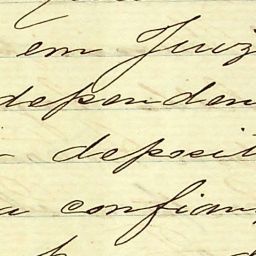 em Juiz
dependen
deposit
a confian